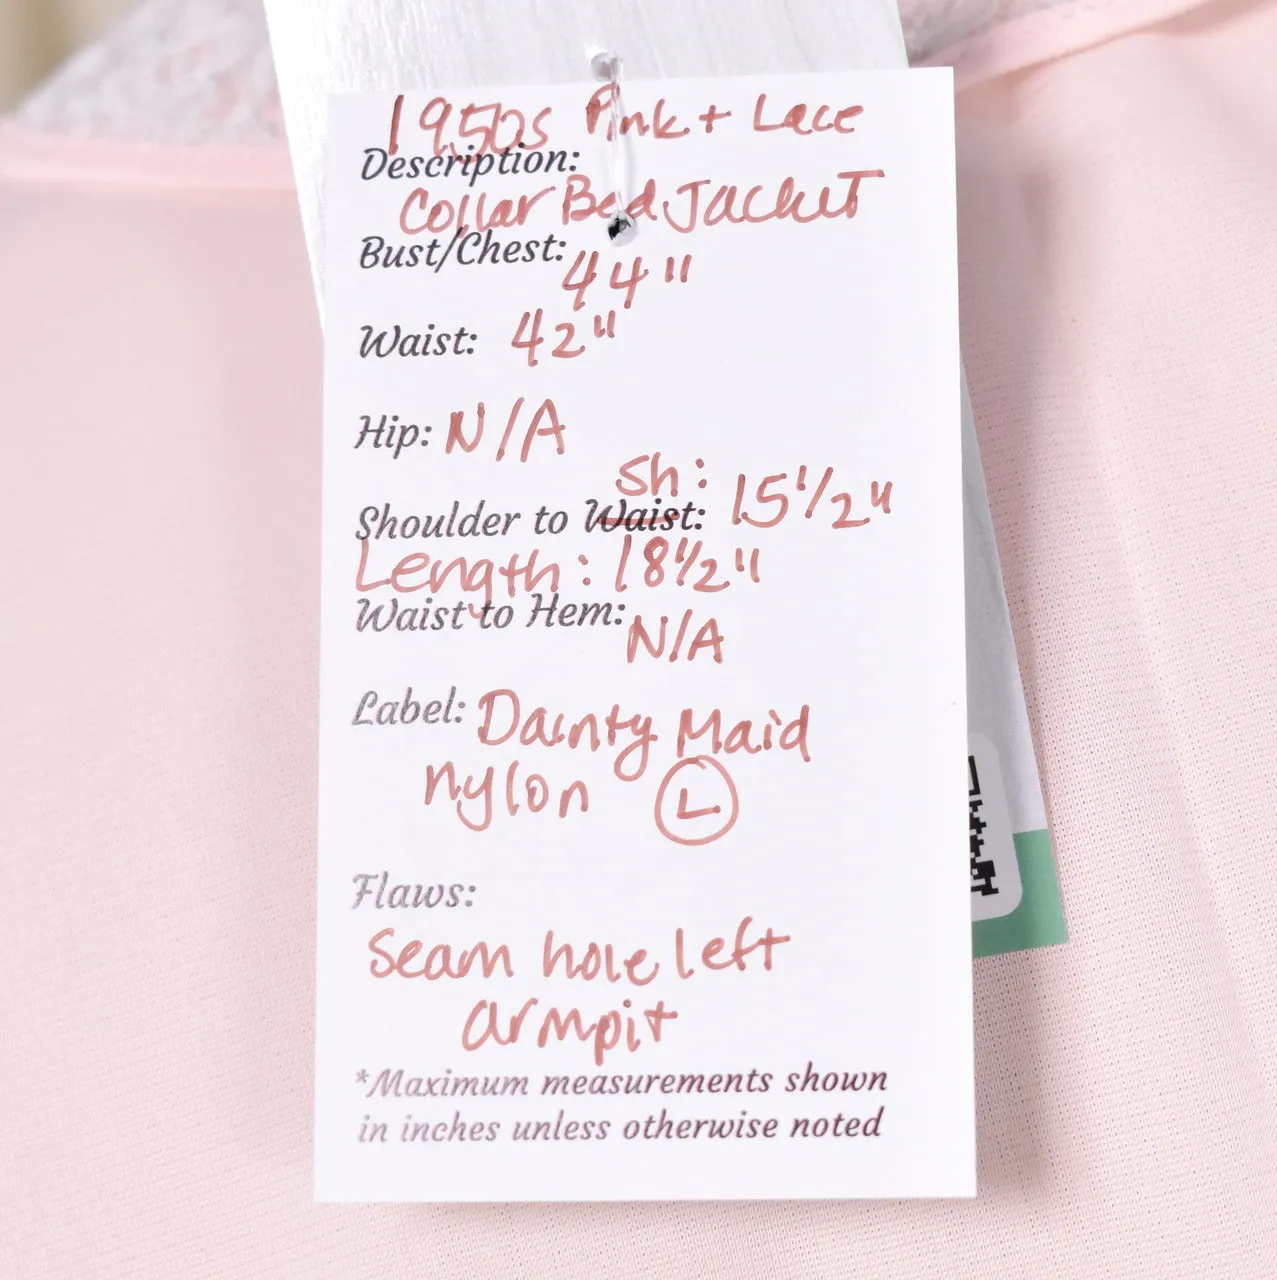 1950s Pink + Lace
Description:
Collar Bed Jacket
Bust/Chest: 44"
Waist: 42"
Hip: N/A
Sh:
Shoulder to Waist: 15 1/2"
Length: 18 1/2"
Waist to Hem: N/A
Label: Dainty Maid
nylon L
Flaws:
Seam hole left
armpit
*Maximum measurements shown
in inches unless otherwise noted